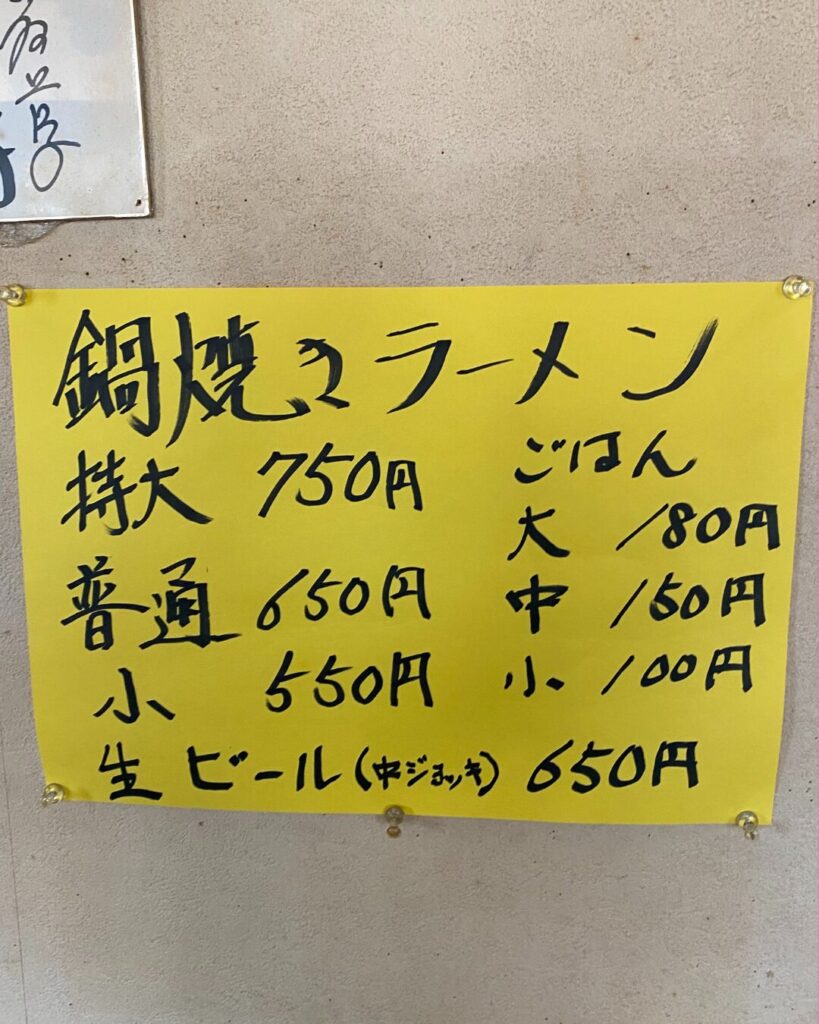 鍋焼きラーメン
特大 750円
普通 650円
小 550円
ごはん
大 180円
中 150円
小 100円
生ビール(中ジョッキ) 650円